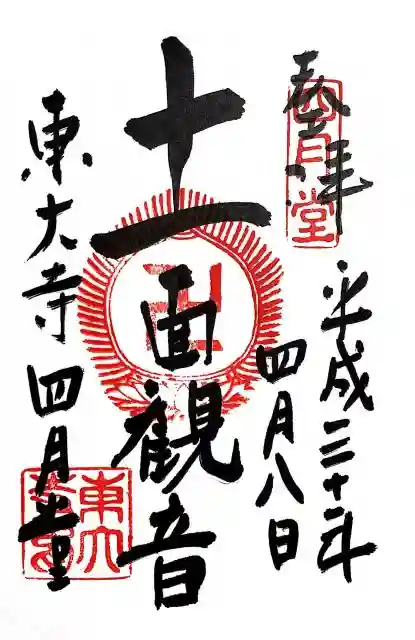 奉拝
四月堂
平成三十一年
四月八日
十一面観音
卍
東大寺四月堂
東大